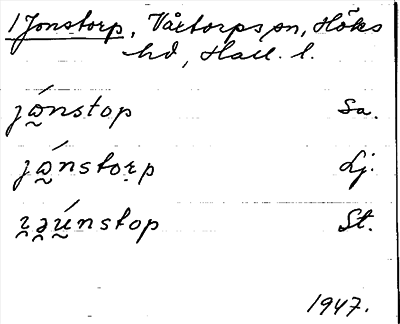 1 Jonstorp, Våxtorps sn, Höks
hd, Hall. l.
jó̰nstop Sa.
jó̰nstorp Lj.
nstop St.
1947.